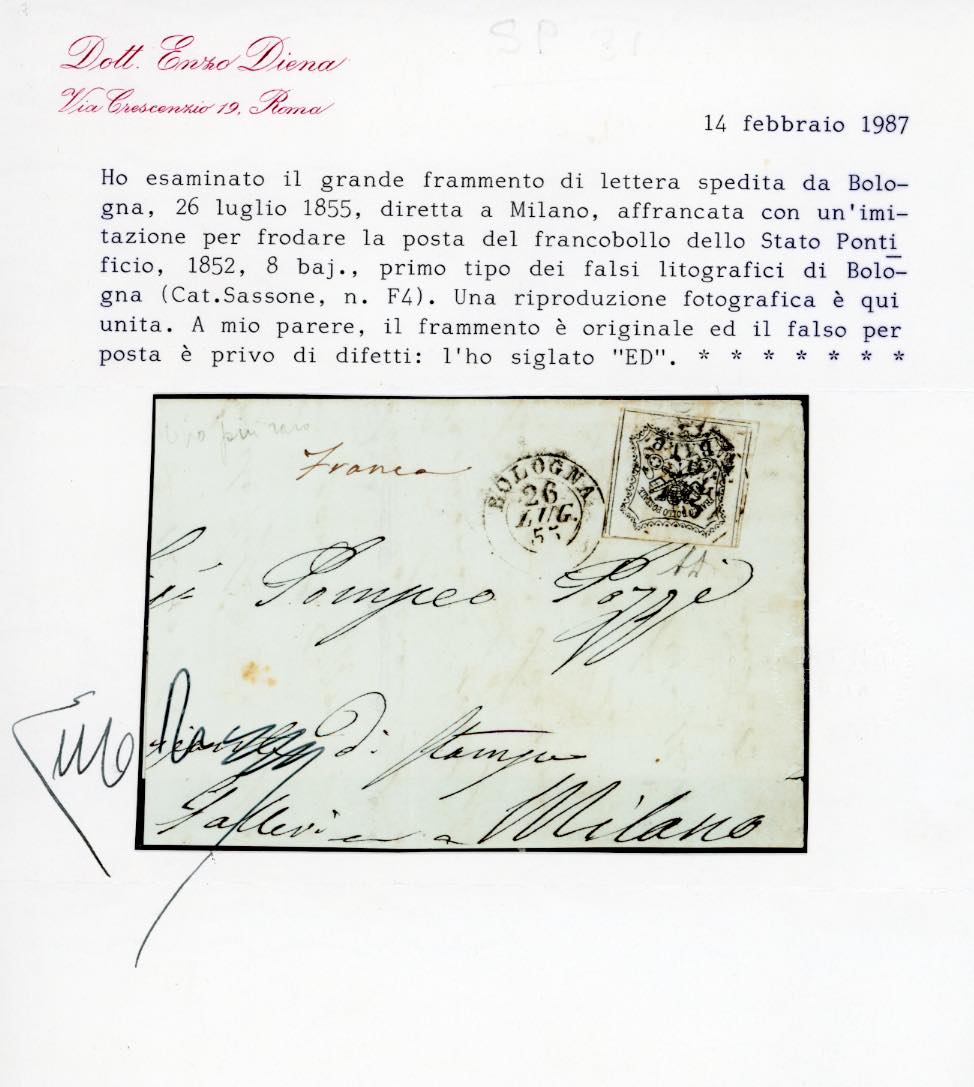 SP 31
Dott. Enzo Diena
Via Crescenzio 19, Roma
14 febbraio 1987
Ho esaminato il grande frammento di lettera spedita da Bolo-
gna, 26 luglio 1855, diretta a Milano, affrancata con un'imi-
tazione per frodare la posta del francobollo dello Stato Ponti
ficio, 1852, 8 baj., primo tipo dei falsi litografici di Bolo-
gna (Cat.Sassone, n. F4). Una riproduzione fotografica è qui
unita. A mio parere, il frammento è originale ed il falso per
posta è privo di difetti: l'ho siglato "ED". * * * * * * *
più raro
Franca
BOLOGNA
26
LUG.
55
Pompeo Pozzi
di Stampe
a Milano